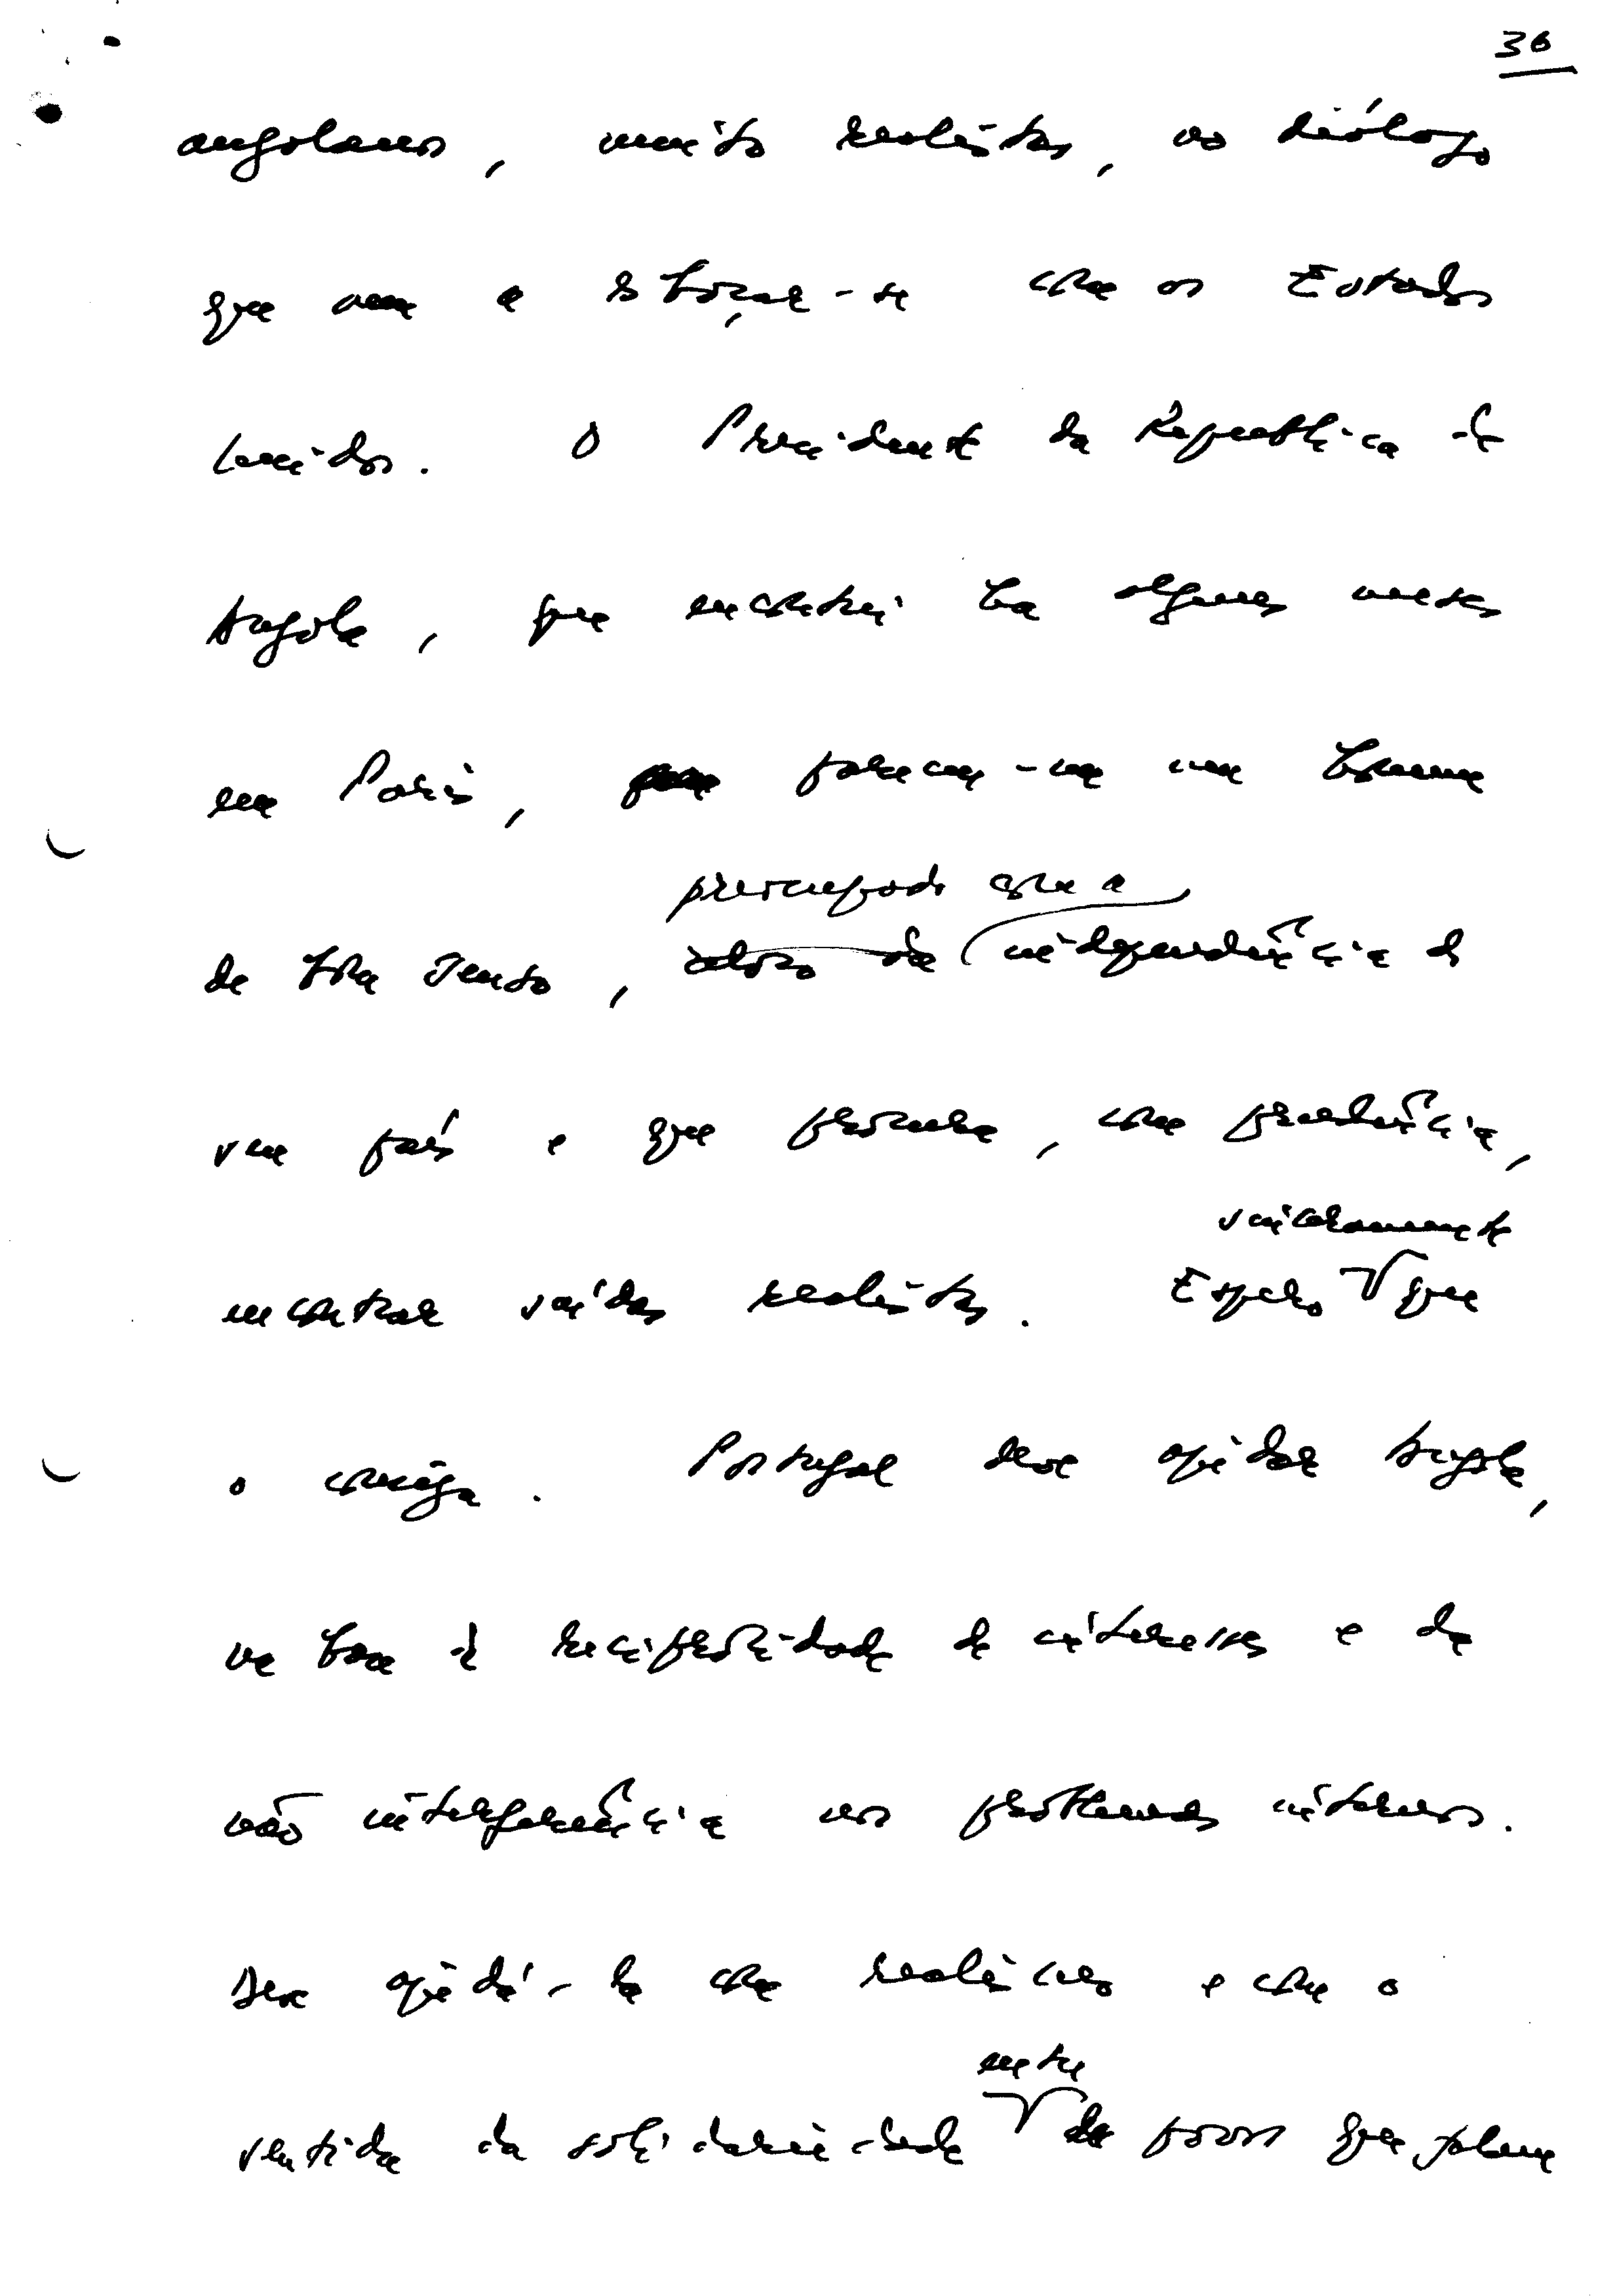 36
angolanos, muito realistas, no diálogo
que vem a esboçar-se com os Estados
Unidos. O Presidente da Republica de
Angola, que encontrei ha alguns meses
em Paris, pareceu-me um homem
preocupado com a
de bom senso, independência do
seu país e que procura, com prudência,
sinceramente
encontrar saídas realistas. Espero que
o consiga. Portugal deve ajudar Angola,
na base da reciprocidade de interesses e da
não interferência nos problemas internos.
Deve ajudá-la com realismo e com o
entre
sentido da solidariedade povos que falam